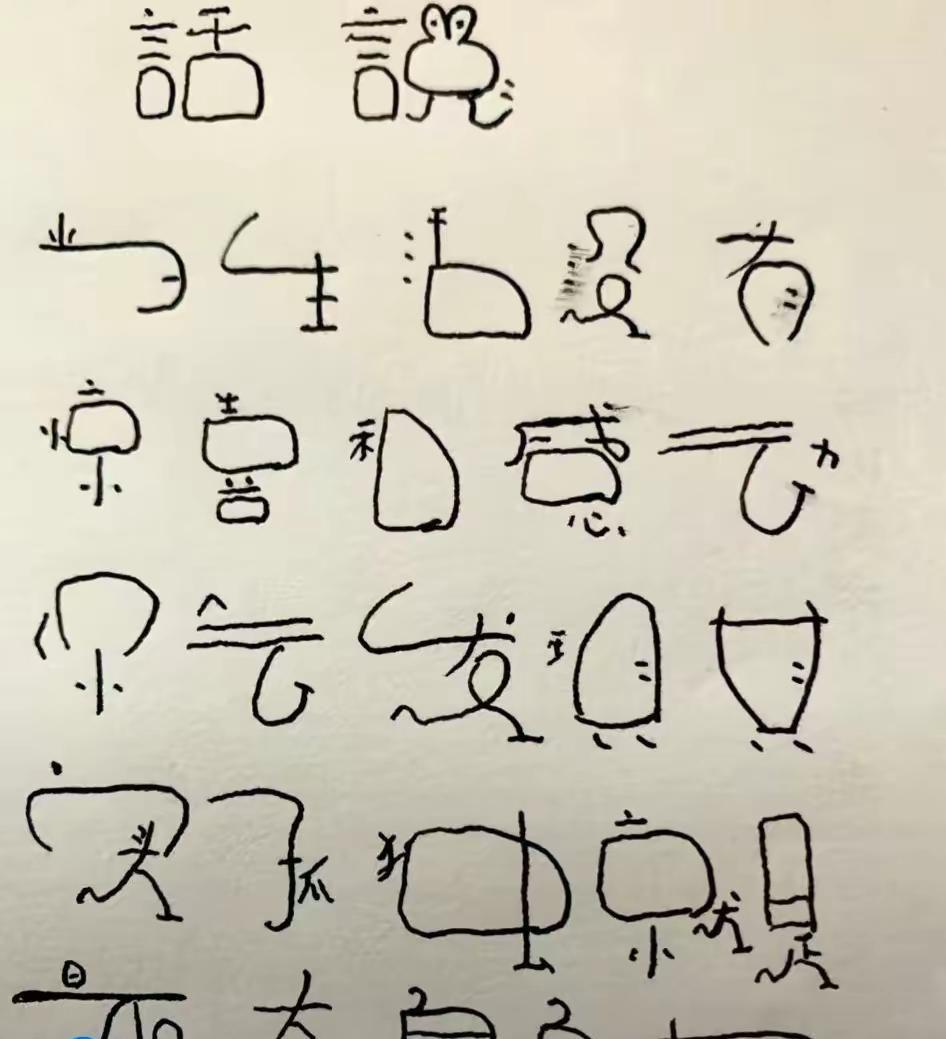 話說
当生活是有
惊喜和感动
你会发现其
实孤独就是